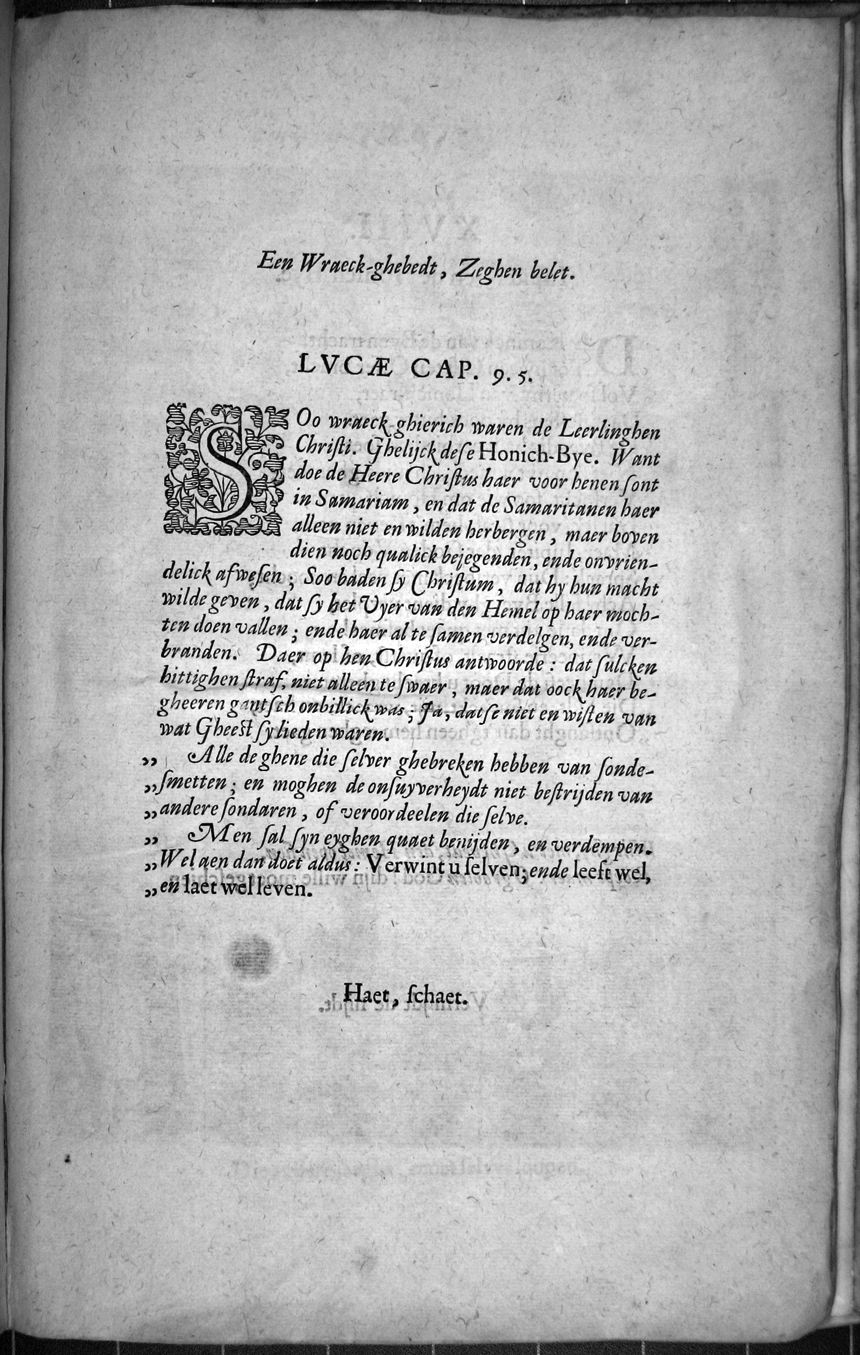 Een Wraeck-ghebedt, Zeghen belet.
LVCÆ CAP. 9. 5.
SOo wraeck-ghierich waren de Leerlinghen
Chriſti. Ghelijck deſe Honich-Bye. Want
doe de Heere Chriſtus haer voor henen ſont
in Samariam, en dat de Samaritanen haer
alleen niet en wilden herbergen, maer boven
dien noch qualick bejegenden, ende onvrien-
delick afweſen; Soo baden ſy Chriſtum, dat hy hun macht
wilde geven, dat ſy het Vyer van den Hemel op haer moch-
ten doen vallen; ende haer al te ſamen verdelgen, ende ver-
branden. Daer op hen Chriſtus antwoorde: dat ſulcken
hittighen ſtraf, niet alleen te ſwaer, maer dat oock haer be-
gheeren gantſch onbillick was; Ja, datſe niet en wiſten van
wat Gheeſt ſy lieden waren.
„ Alle de ghene die ſelver ghebreken hebben van ſonde-
„ ſmetten; en moghen de onſuyverheydt niet beſtrijden van
„ andere ſondaren, of veroordeelen die ſelve.
„ Men ſal ſyn eyghen quaet benijden, en verdempen.
„ Wel aen dan doet aldus: Verwint u ſelven; ende leeft wel,
„ en laet wel leven.
Haet, ſchaet.